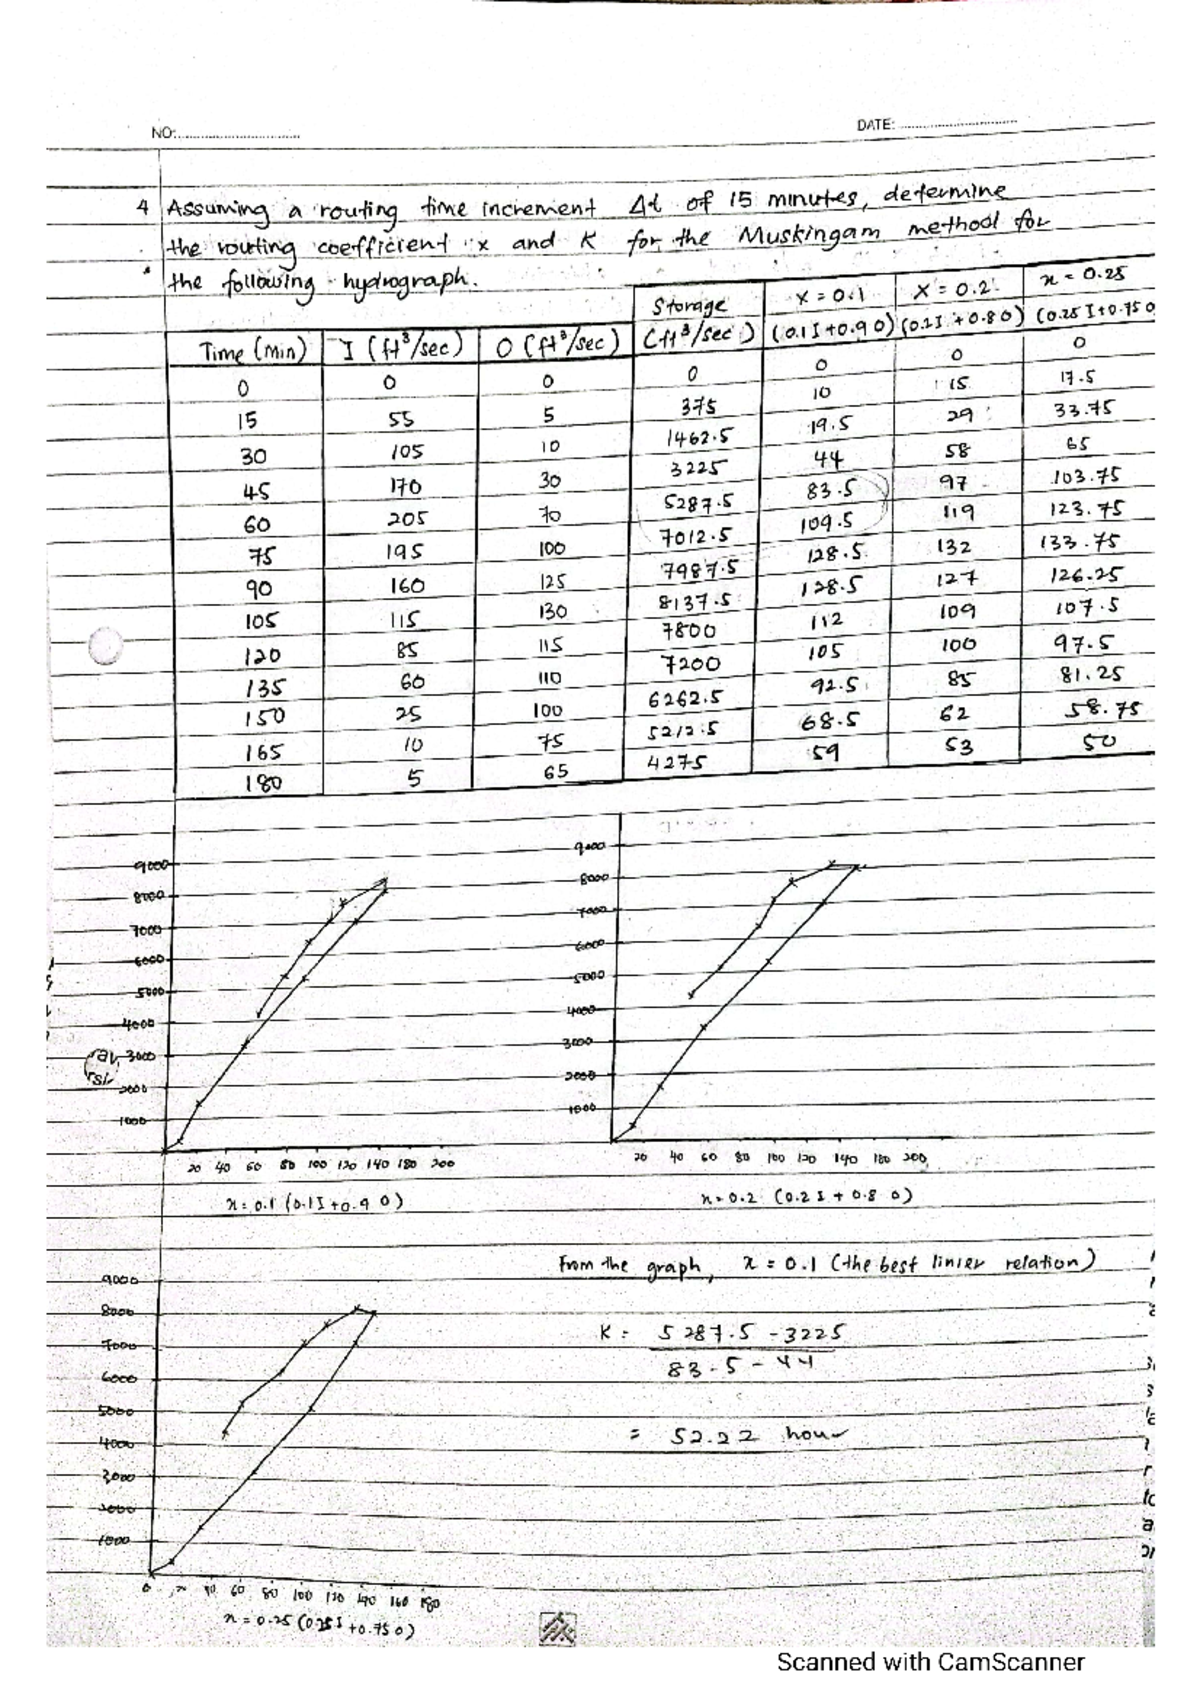 NO:
DATE:
4 Assuming a routing time increment Δt of 15 minutes, determine
the routing coefficient x and K for the Muskingam method for
the following hydrograph.
Time (min) I (ft³/sec) O (ft³/sec) Storage (ft³/sec) X = 0.1 (0.1I+0.9 O) X = 0.2 (0.2I + 0.8 O) x = 0.25 (0.25 I+0.75 O
0 0 0 0 0 0 0
15 55 5 375 10 15 17.5
30 105 10 1462.5 19.5 29 33.75
45 170 30 3225 44 58 65
60 205 70 5287.5 83.5 97 103.75
75 195 100 7012.5 109.5 119 123.75
90 160 125 7987.5 128.5 132 133.75
105 115 130 8137.5 128.5 127 126.25
120 85 115 7800 112 109 107.5
135 60 110 7200 105 100 97.5
150 25 100 6262.5 92.5 85 81.25
165 10 75 5212.5 68.5 62 58.75
180 5 65 4275 59 53 50
9000
8000
7000
6000
5000
4000
3000
2000
1000
20 40 60 80 100 120 140 180 200
x = 0.1 (0.1I+0.9 O)
9000
8000
7000
6000
5000
4000
3000
2000
1000
20 40 60 80 100 120 140 180 200
x = 0.2 (0.2 I + 0.8 O)
From the graph, x = 0.1 (the best linier relation)
K = 5287.5 - 3225
83.5 - 44
= 52.22 hour
9000
8000
7000
6000
5000
4000
3000
2000
1000
0 20 40 60 80 100 120 140 160 180
x = 0.25 (0.25I +0.75 O)
Scanned with CamScanner